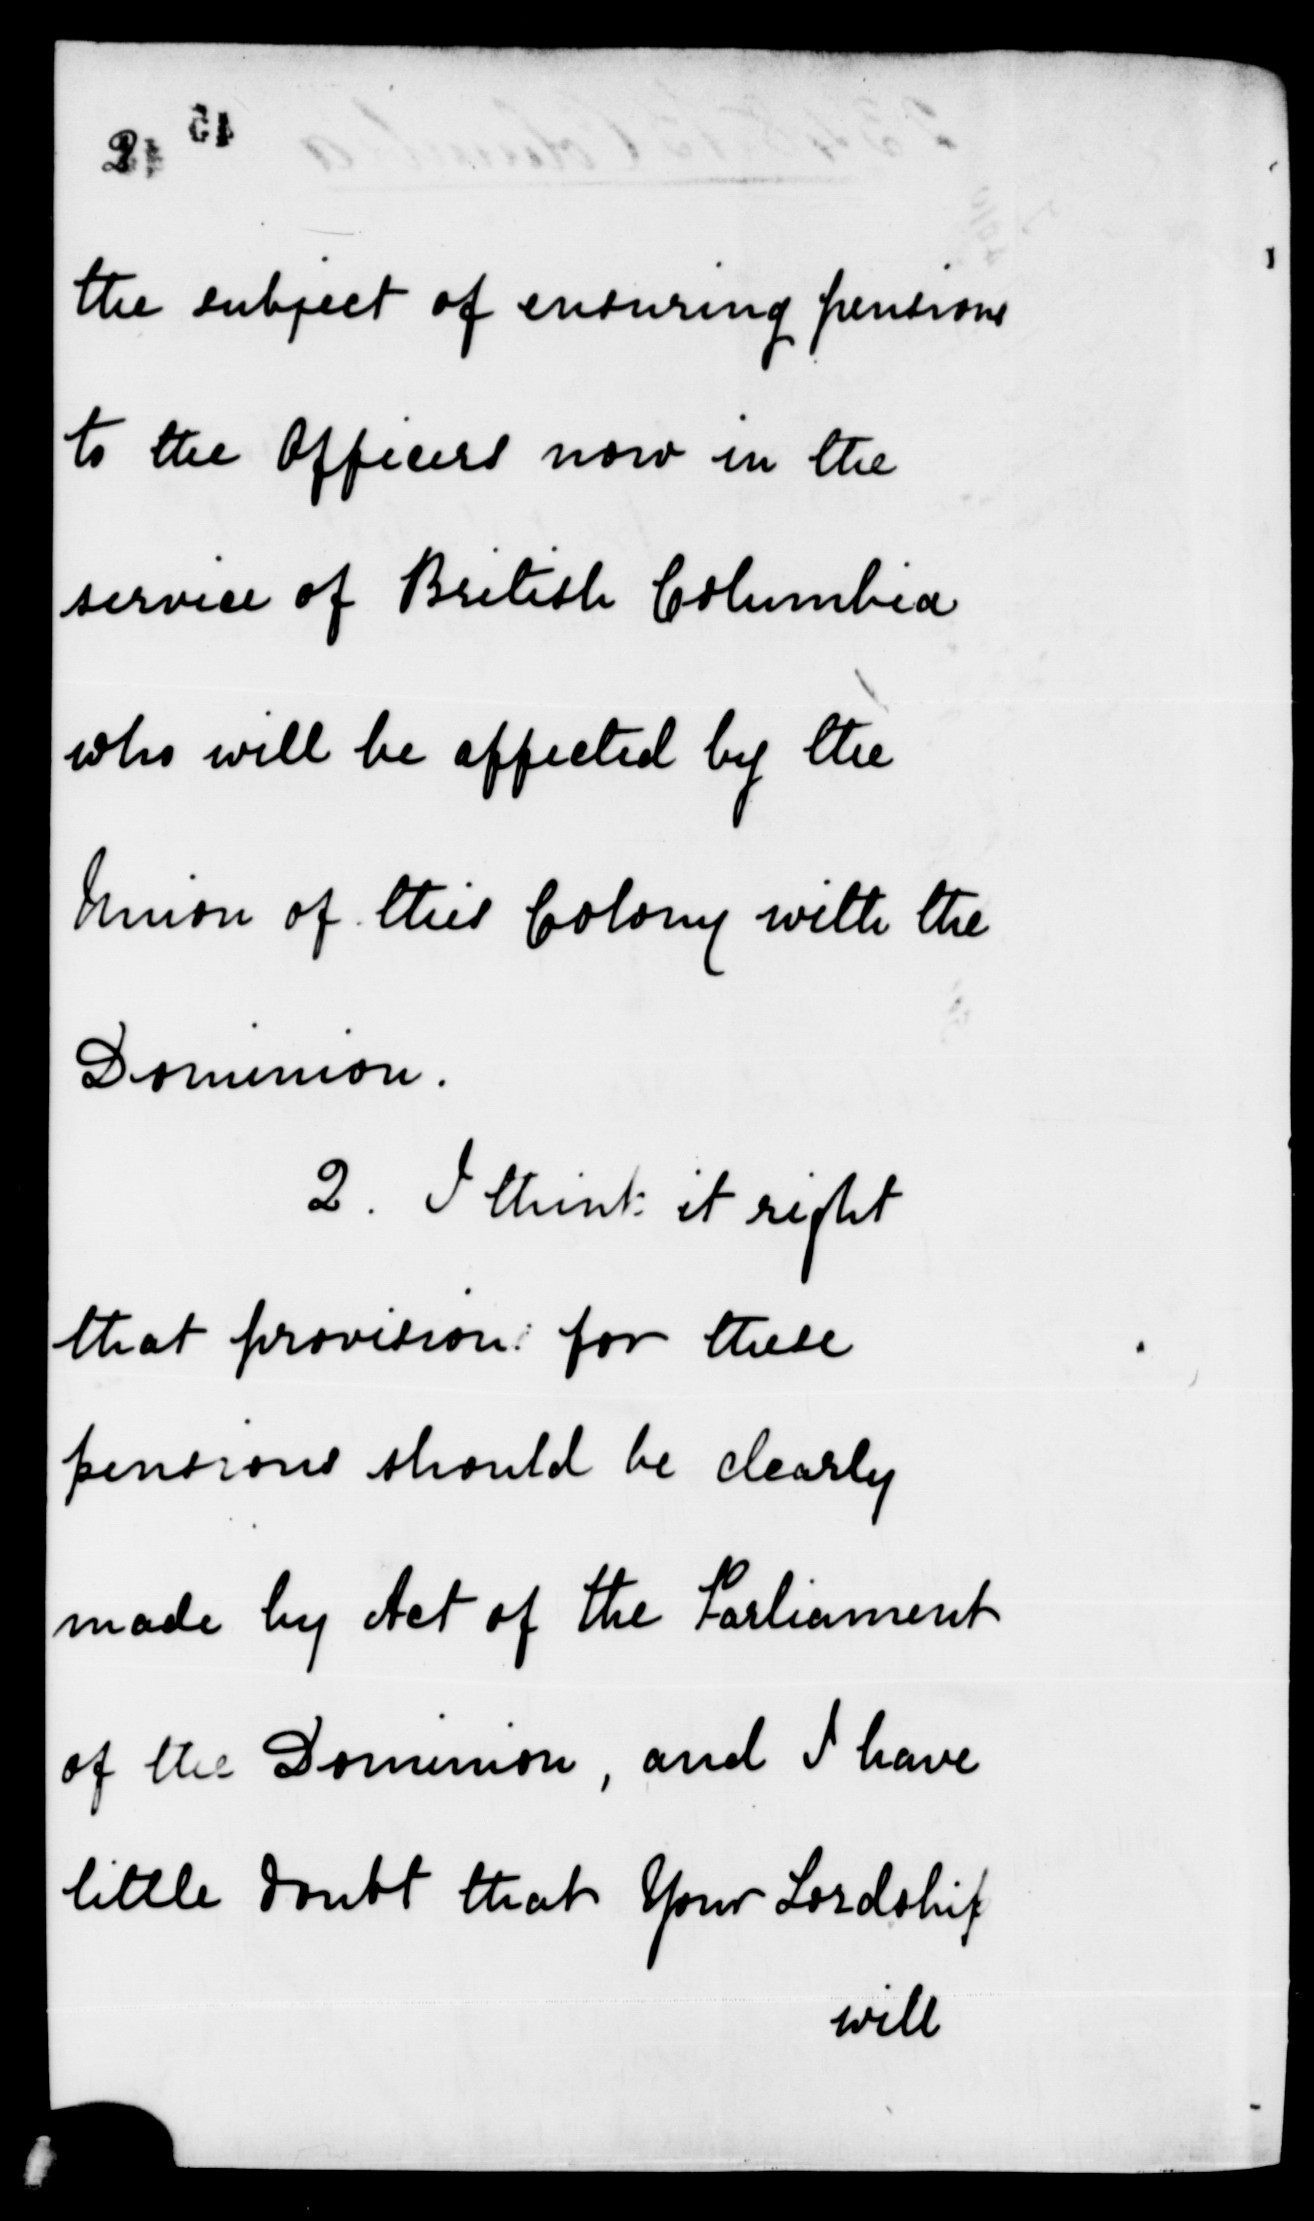 2
the subject of ensuring pensions
to the Officers now in the
service of British Columbia
who will be affected by the
Union of this Colony with the
Dominion.
2. I think it right
that provision for these
pensions should be clearly
made by Act of the Parliament
of the Dominion, and I have
little doubt that Your Lordship
will